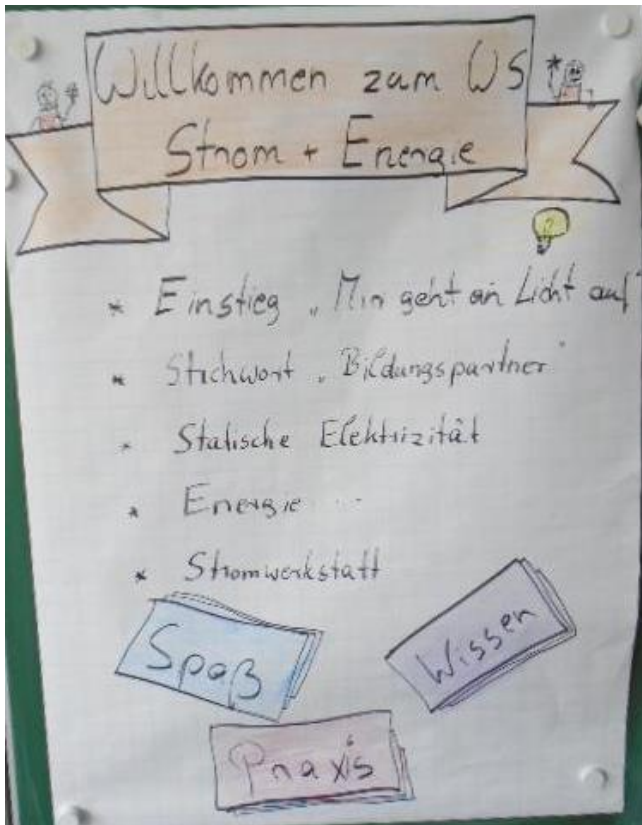 Willkommen zum WS
Strom + Energie
* Einstieg „Mir geht ein Licht auf"
* Stichwort „Bildungspartner"
* Statische Elektrizität
* Energie ...
* Stromwerkstatt
Spaß
Wissen
Praxis